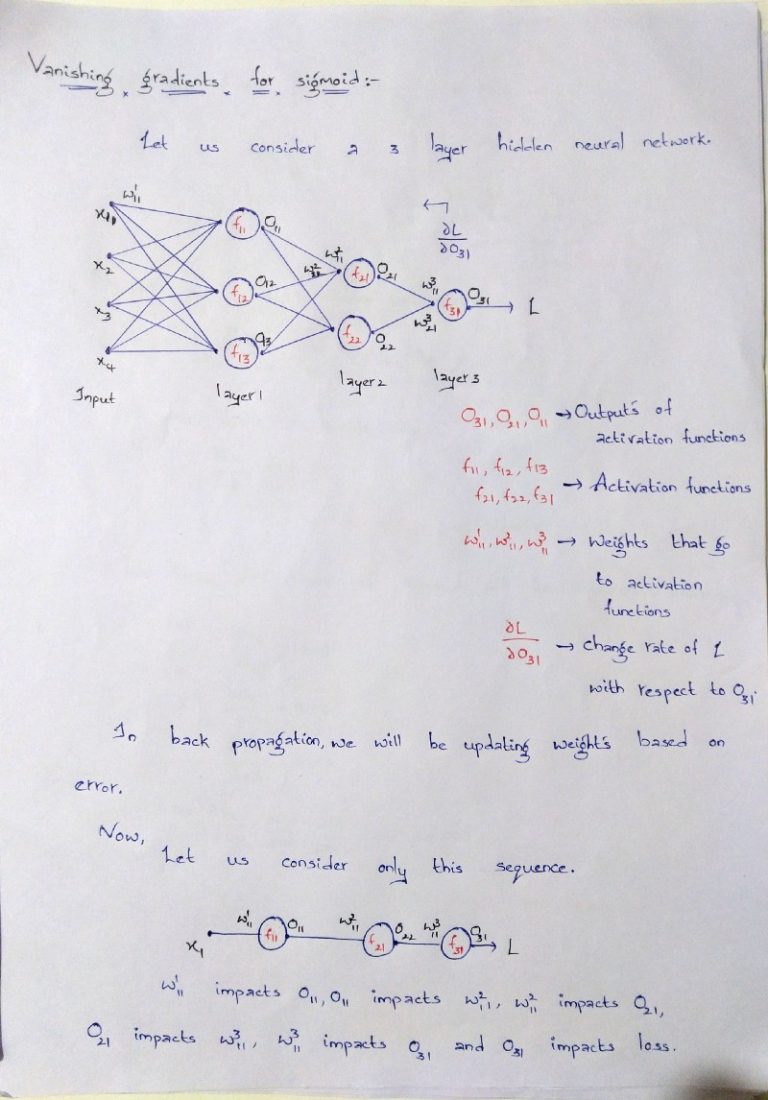 Vanishing gradients for sigmoid:-
Let us consider a 3 layer hidden neural network.
w¹₁₁
x₁₁
x₂
x₃
x₄
f₁₁ O₁₁
f₁₂ O₁₂
f₁₃
w²₁₁
f₂₁ O₂₁
f₂₂ O₂₂
w³₁₁
w³₂₁
f₃₁ O₃₁
L
←
∂L
∂O₃₁
Input layer 1 layer 2 layer 3
O₃₁, O₂₁, O₁₁ → Outputs of
activation functions
f₁₁, f₁₂, f₁₃
f₂₁, f₂₂, f₃₁ → Activation functions
w¹₁₁, w²₁₁, w³₁₁ → Weights that go
to activation
functions
∂L
∂O₃₁ → Change rate of L
with respect to O₃₁.
In back propagation, we will be updating weights based on
error.
Now,
Let us consider only this sequence.
x₁ w¹₁₁ f₁₁ O₁₁ w²₁₁ f₂₁ O₂₂ w³₁₁ f₃₁ O₃₁ → L
w¹₁₁ impacts O₁₁, O₁₁ impacts w²₁₁, w²₁₁ impacts O₂₁,
O₂₁ impacts w³₁₁, w³₁₁ impacts O₃₁ and O₃₁ impacts loss.